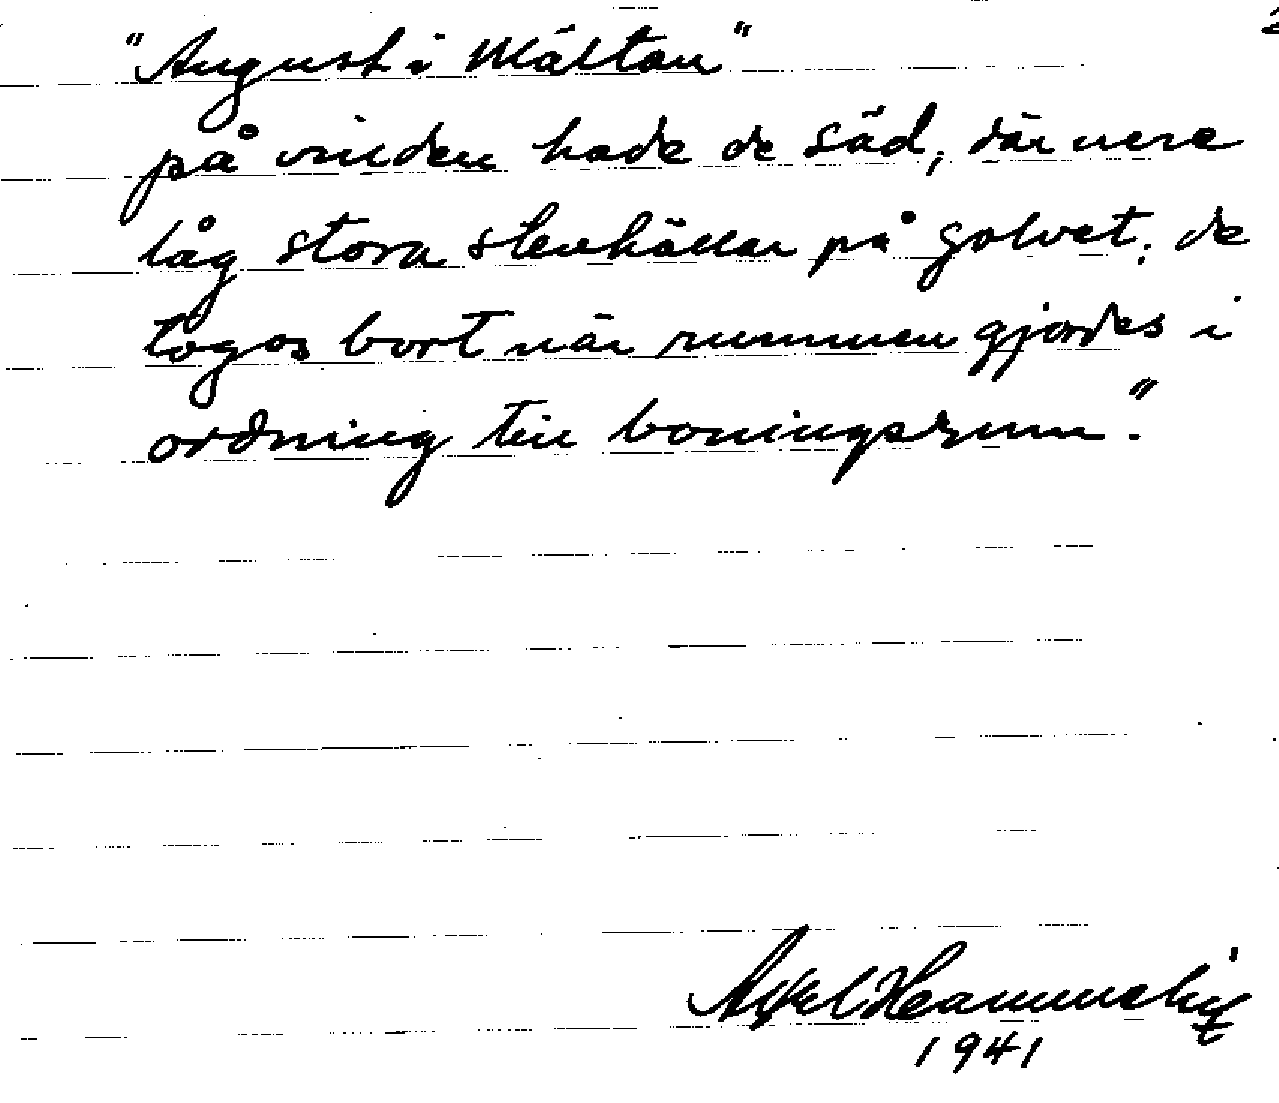 2
"August i Mältan"
på vinden hade de säd, där nere
låg stora stenhällar på golvet; de
togos bort när rummen gjordes i
ordning till boningsrum."
Axel
1941